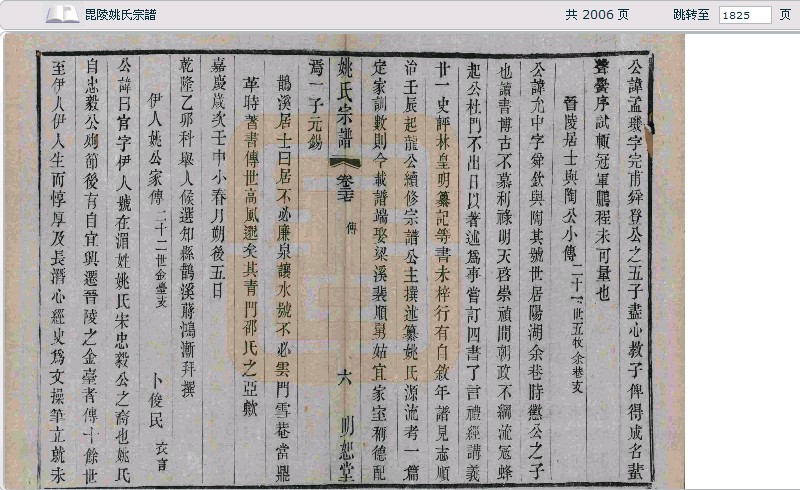 毘陵姚氏宗譜
共 2006 页
跳转至 1825 页
公諱孟璣字完甫舜登公之五子盡心教子俾得成名蜚
聲黌序試輒冠軍鵬程未可量也
晉陵居士與陶公小傳 二十一世五牧余巷支
公諱允中字舜欽與陶其號世居陽湖余巷時徵公之子
也讀書博古不慕利祿明天啓崇禎間朝政不綱流寇蜂
起公杜門不出日以著述爲事嘗訂四書了言禮經講義
廿一史評林皇明纂記等書未梓行有自敘年譜見志順
治壬辰起龍公續修宗譜公主撰述纂姚氏源流考一篇
定家訓數則今載譜端娶梁溪裴順舅姑宜家室稱德配
焉一子元錫
姚氏宗譜 卷三 傳 六 明恕堂
鵲溪居士曰居不必廉泉讓水號不必雲門雪巷當鼎
革時著書傳世高風邈矣其青門邵氏之亞歟
嘉慶歲次壬申小春月朔後五日
乾隆乙卯科舉人候選知縣鵲溪蔣鴻漸拜撰
伊人姚公家傳 二十二世金臺支 卜俊民 衣言
公諱曰官字伊人號在湄姓姚氏宋忠毅公之裔也姚氏
自忠毅公殉節後有自宜興遷晉陵之金臺者傳十餘世
至伊人伊人生而惇厚及長潛心經史爲文操筆立就未